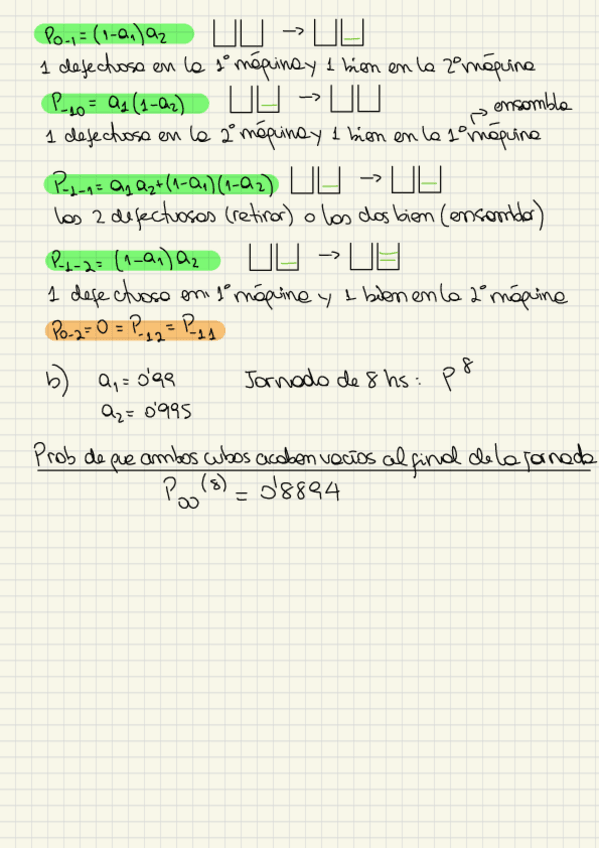 P₀₋₁ = (1-a₁)a₂ →
1 defectuosa en la 1º máquina y 1 bien en la 2º máquina
P₋₁₀ = a₁(1-a₂) →
→ ensambla
1 defectuosa en la 2º máquina y 1 bien en la 1º máquina
P₋₁₋₁ = a₁a₂+(1-a₁)(1-a₂) →
las 2 defectuosas (retirar) o las dos bien (ensamblar)
P₋₁₋₂ = (1-a₁)a₂ →
1 defectuosa en 1º máquina y 1 bien en la 2º máquina
P₀₋₂ = 0 = P₋₁₂ = P₋₁₁
b) a₁ = 0'99 Jornada de 8 hs: P⁸
a₂ = 0'995
Prob de que ambos cubos acaben vacíos al final de la jornada
P₀₀⁽⁸⁾ = 0'8894